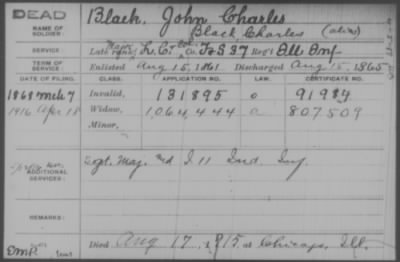 DEAD
NAME OF SOLDIER:
Black, John Charles
Black Charles (alias)
SERVICE:
Late rank, Lt. Col. Co. F&S 37 Reg't Ills Inf
TERM OF SERVICE:
Enlisted Aug 15, 1861 Discharged Aug 15, 1865
DATE OF FILING. CLASS. APPLICATION NO. LAW. CERTIFICATE NO.
1868 Mch 7 Invalid, 131895 91989
1916 Apr 18 Widow, 1,064,444 a 807509
Minor,
ADDITIONAL SERVICES:
Sgt. Maj. and I 11 Ind. Inf.
REMARKS:
Died Aug 17, 1915 at Chicago, Ill.